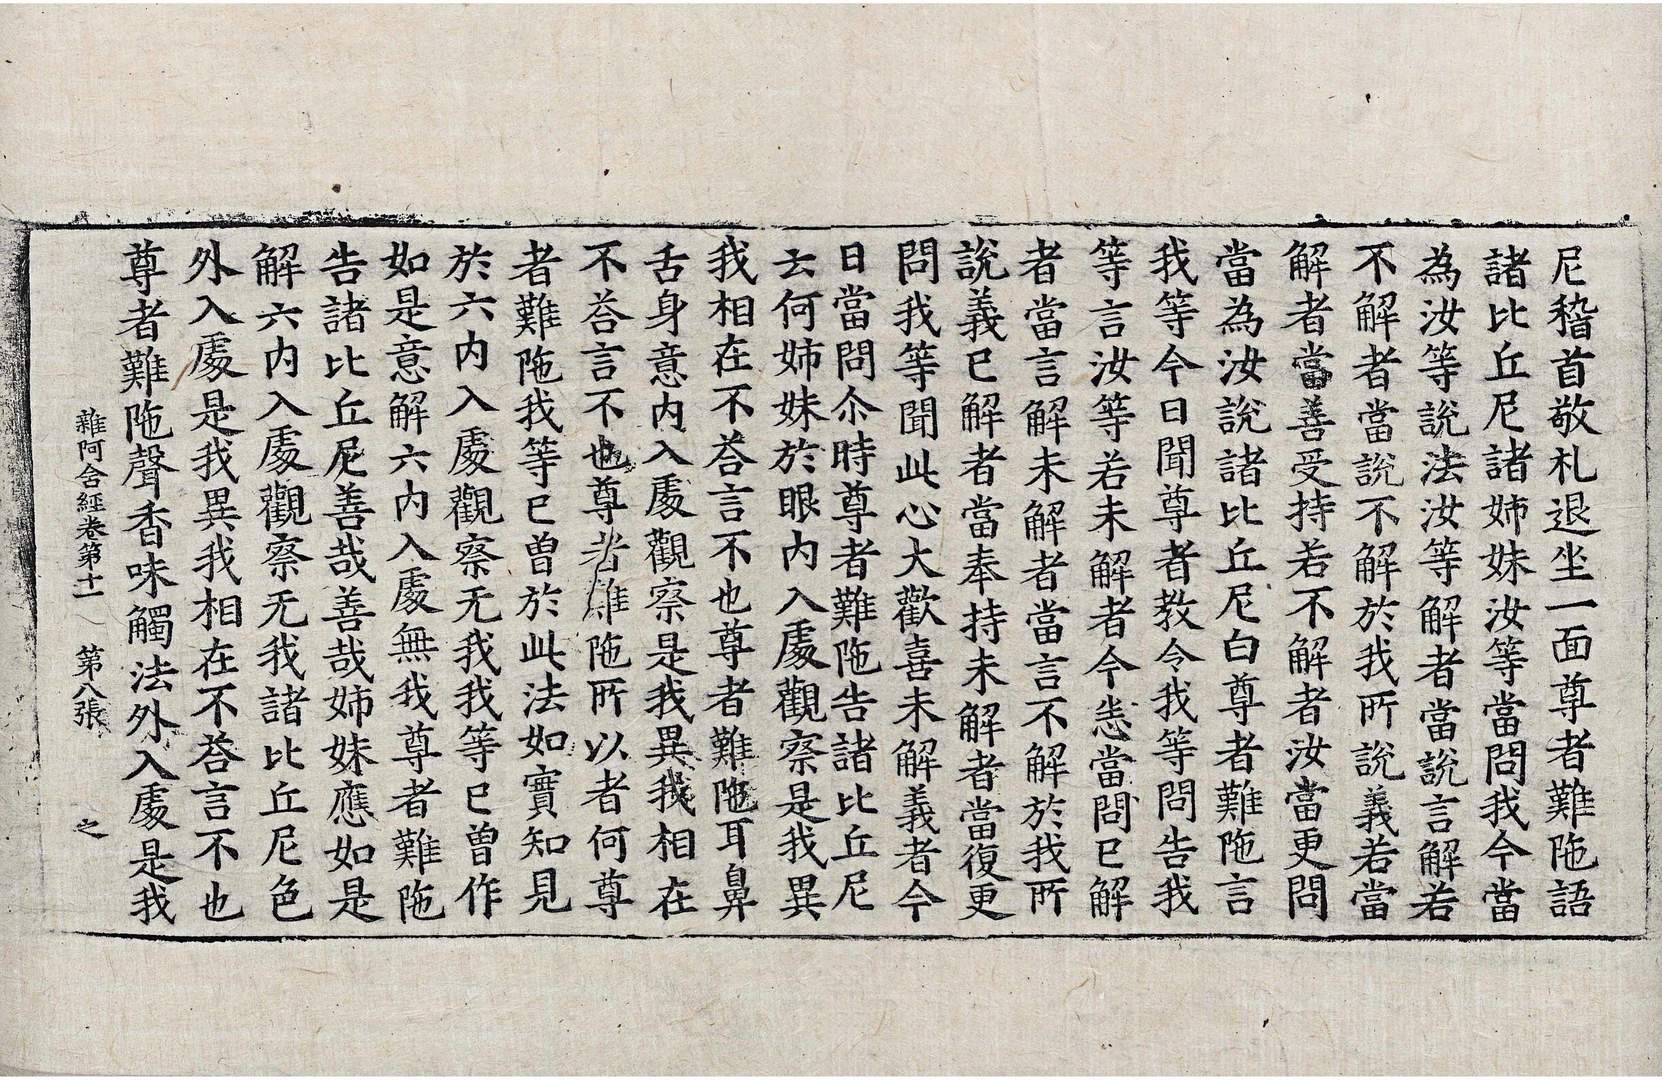 尼稽首敬札退坐一面尊者難陁語
諸比丘尼諸姉妹汝等當問我今當
為汝等說法汝等解者當說言解若
不解者當說不解於我所說義若當
解者當善受持若不解者汝當更問
當為汝說諸比丘尼白尊者難陁言
我等今日聞尊者教令我等問告我
等言汝等若未解者今悉當問已解
者當言解未解者當言不解於我所
說義已解者當奉持未解者當復更
問我等聞此心大歡喜未解義者今
日當問尒時尊者難陁告諸比丘尼
云何姉妹於眼內入處觀察是我異
我相在不荅言不也尊者難陁耳鼻
舌身意內入處觀察是我異我相在
不荅言不也尊者難陁所以者何尊
者難陁我等已曾於此法如實知見
於六內入處觀察无我我等已曾作
如是意解六內入處無我尊者難陁
告諸比丘尼善哉善哉姉妹應如是
解六內入處觀察无我諸比丘尼色
外入處是我異我相在不荅言不也
尊者難陁聲香味觸法外入處是我
雜阿含經卷第十一 第八張 之